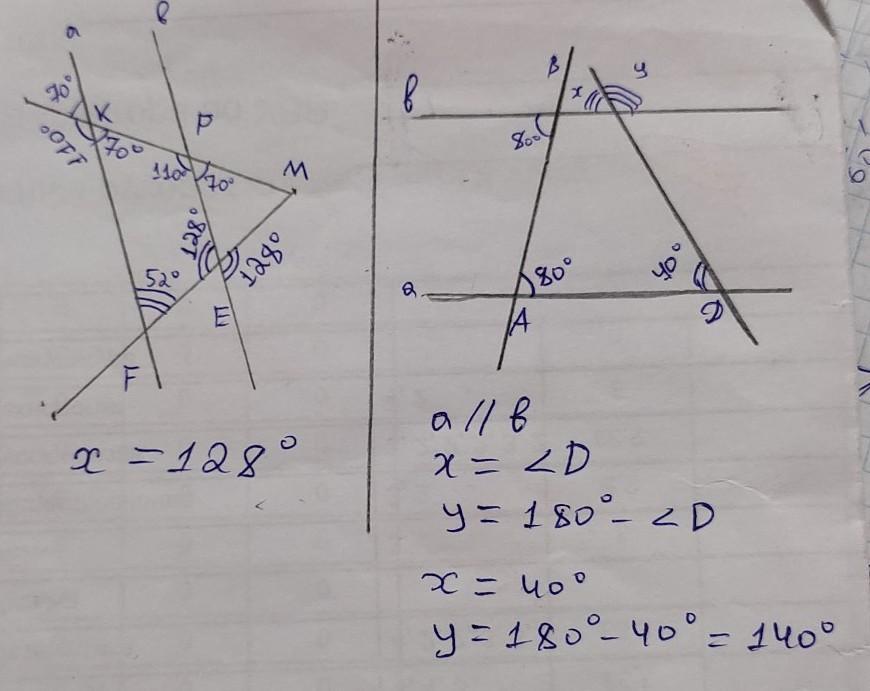 a
в
70°
K
110°
70°
P
110°
70°
M
128°
128°
52°
E
F
x = 128°
в
B
x
y
80°
a
80°
40°
A
D
a // в
x = ∠D
y = 180° - ∠D
x = 40°
y = 180° - 40° = 140°